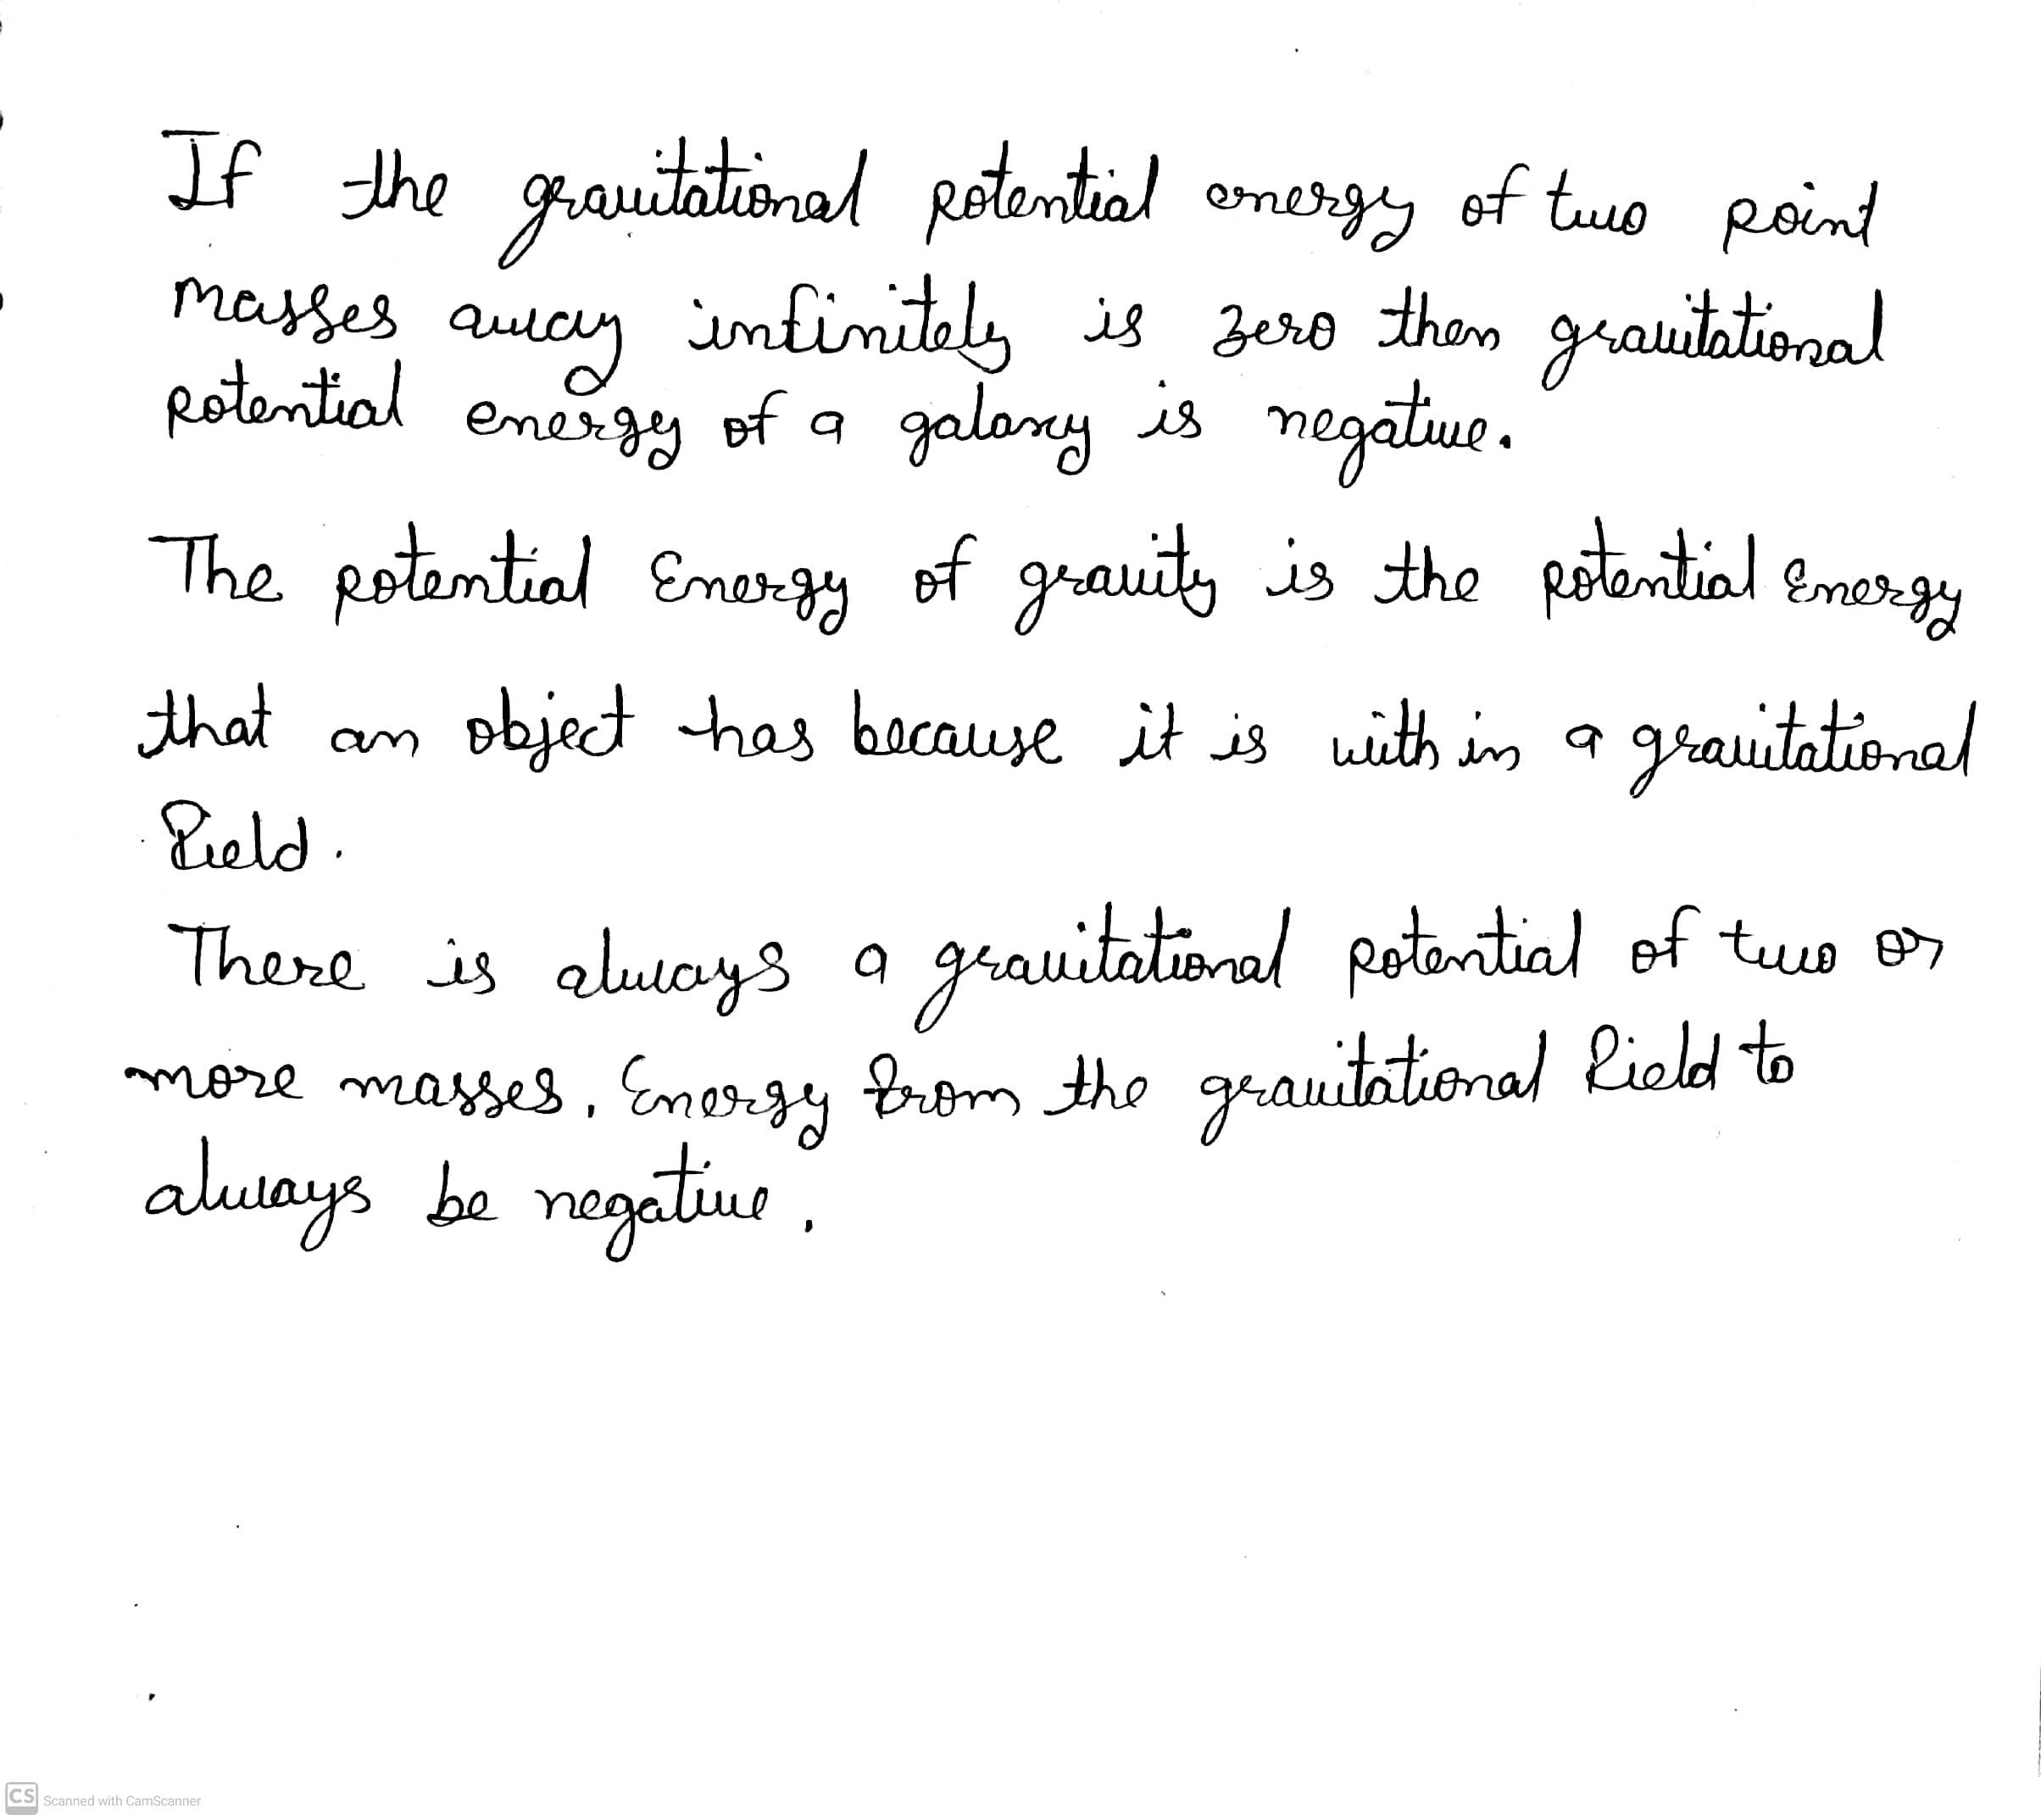 If the gravitational potential energy of two point
masses away infinitely is zero then gravitational
potential energy of a galaxy is negative.
The potential Energy of gravity is the potential Energy
that an object has because it is with in a gravitational
field.
There is always a gravitational potential of two or
more masses. Energy from the gravitational field to
always be negative.
CS Scanned with CamScanner